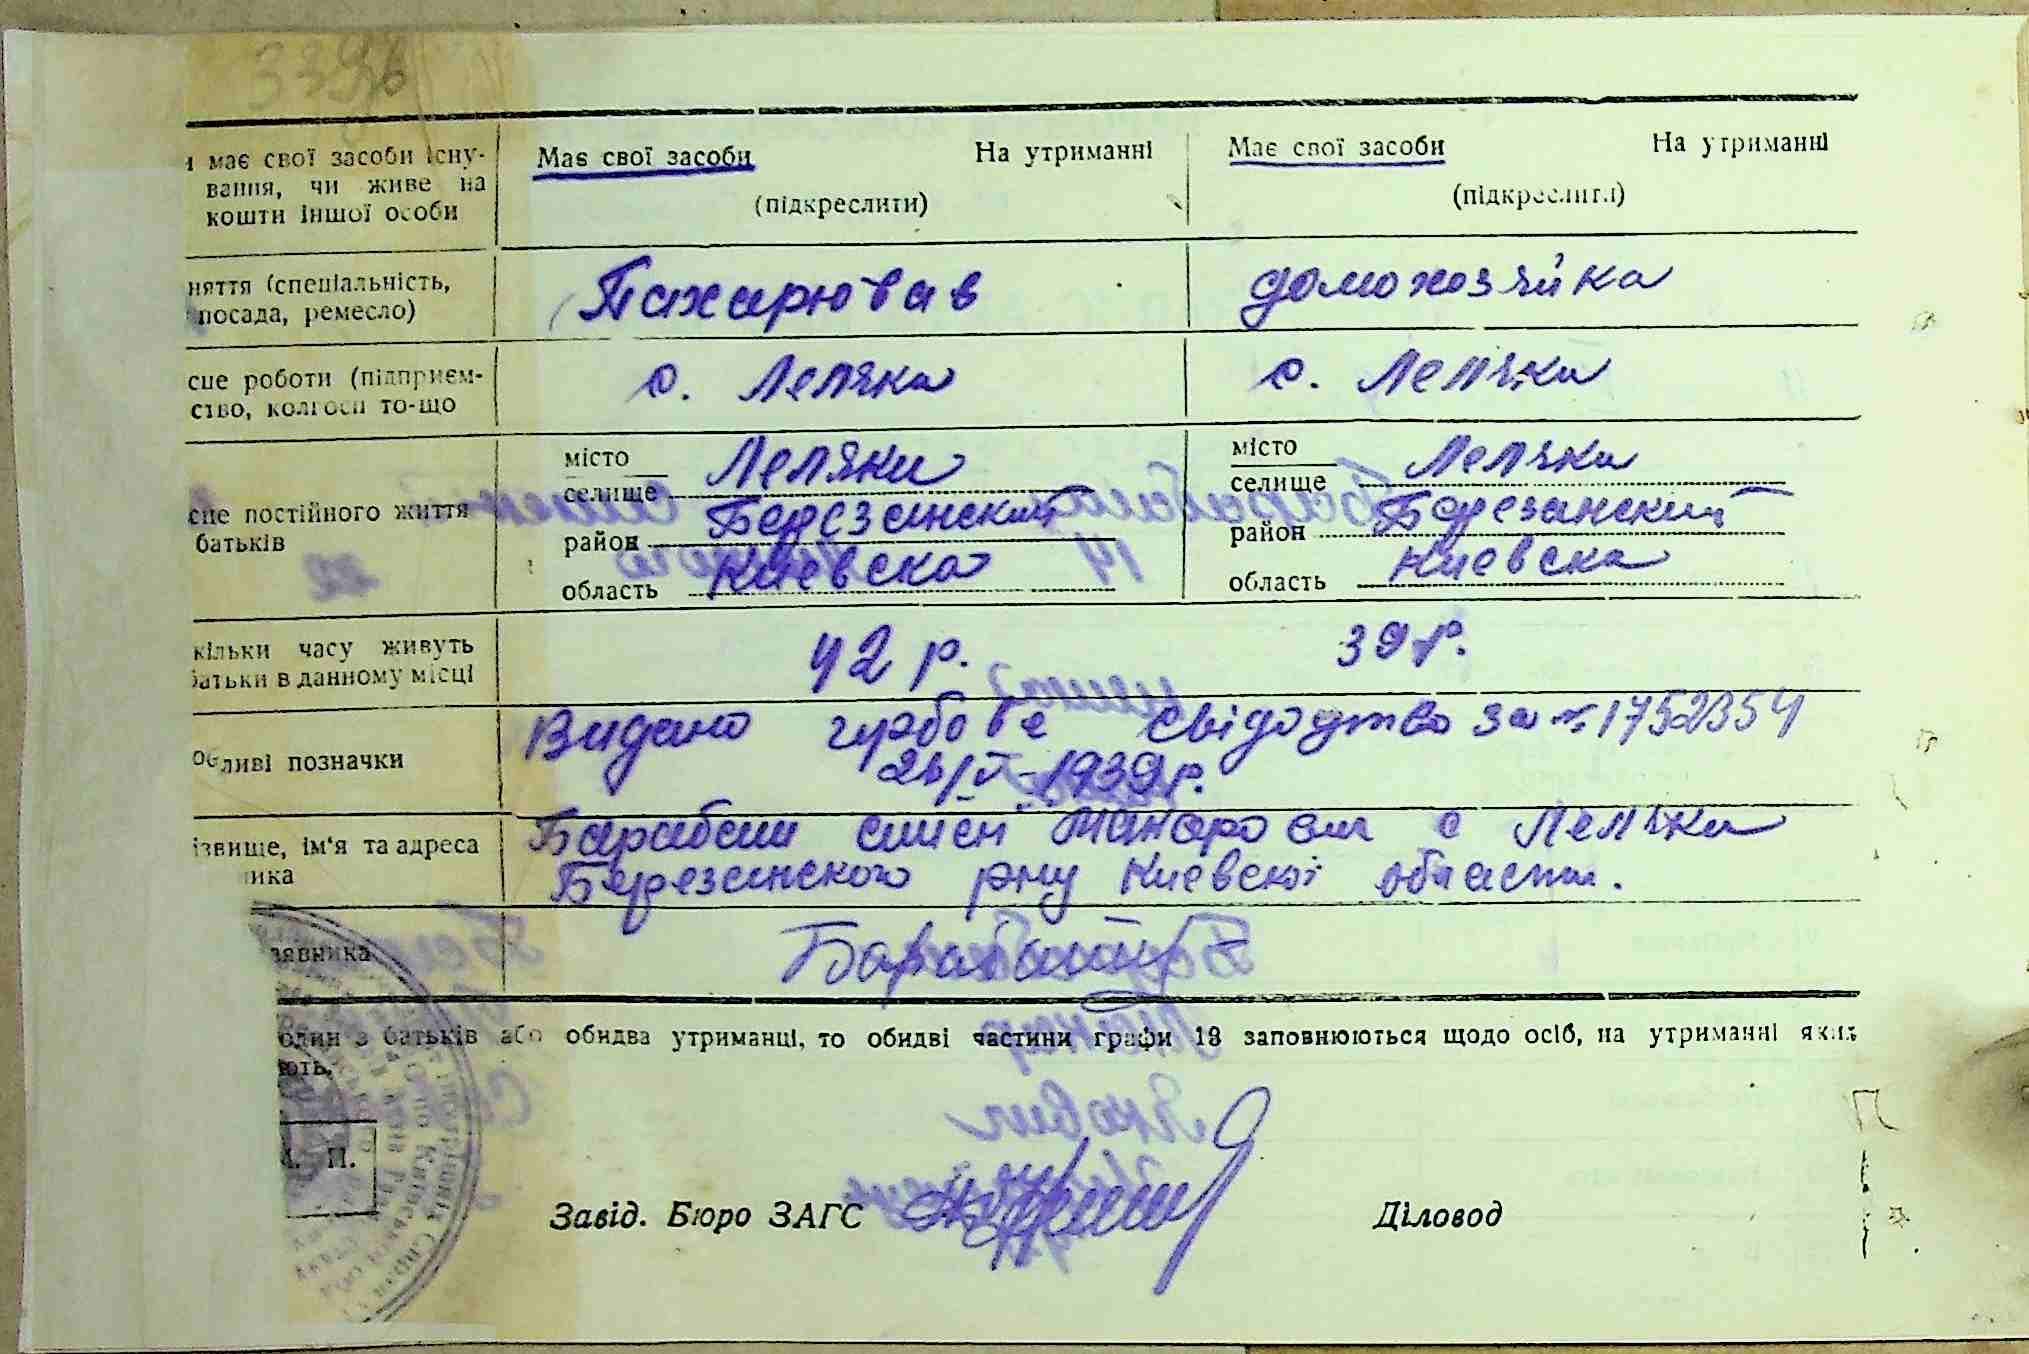 має свої засоби існу-
вання, чи живе на
кошти іншої особи
Має свої засоби На утриманні
(підкреслити)
Має свої засоби На утриманні
(підкреслити)
няття (спеціальність,
посада, ремесло)
Пахарював
домохозяйка
сце роботи (підприєм-
ство, колгосп то-що
с. Леляки
с. Леляки
сце постійного життя
батьків
місто
селище Леляки
район Березанский
область Киевска
місто
селище Леляки
район Березанский
область Киевска
кільки часу живуть
батьки в данному місці
42 р.
39 р.
ливі позначки
Видано гербове свідодтво за № 1752354
1939 р.
ізвище, ім'я та адреса
ника
Барабаш с Леляки
Березанского рну Киевскої области.
заявника
один з батьків або обидва утриманці, то обидві частини графи 13 заповнюються щодо осіб, на утриманні яких
ють.
М. П.
Завід. Бюро ЗАГС
Діловод